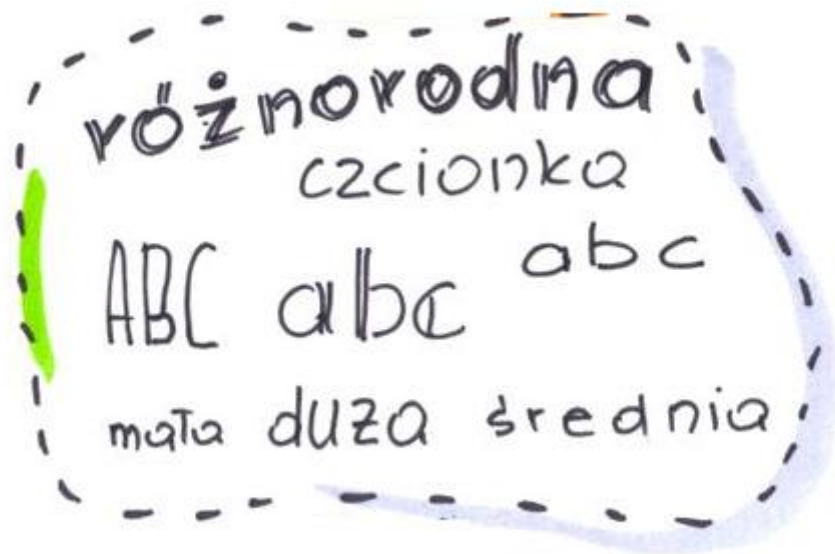 różnorodna
czcionka
ABC abc abc
mała duża średnia